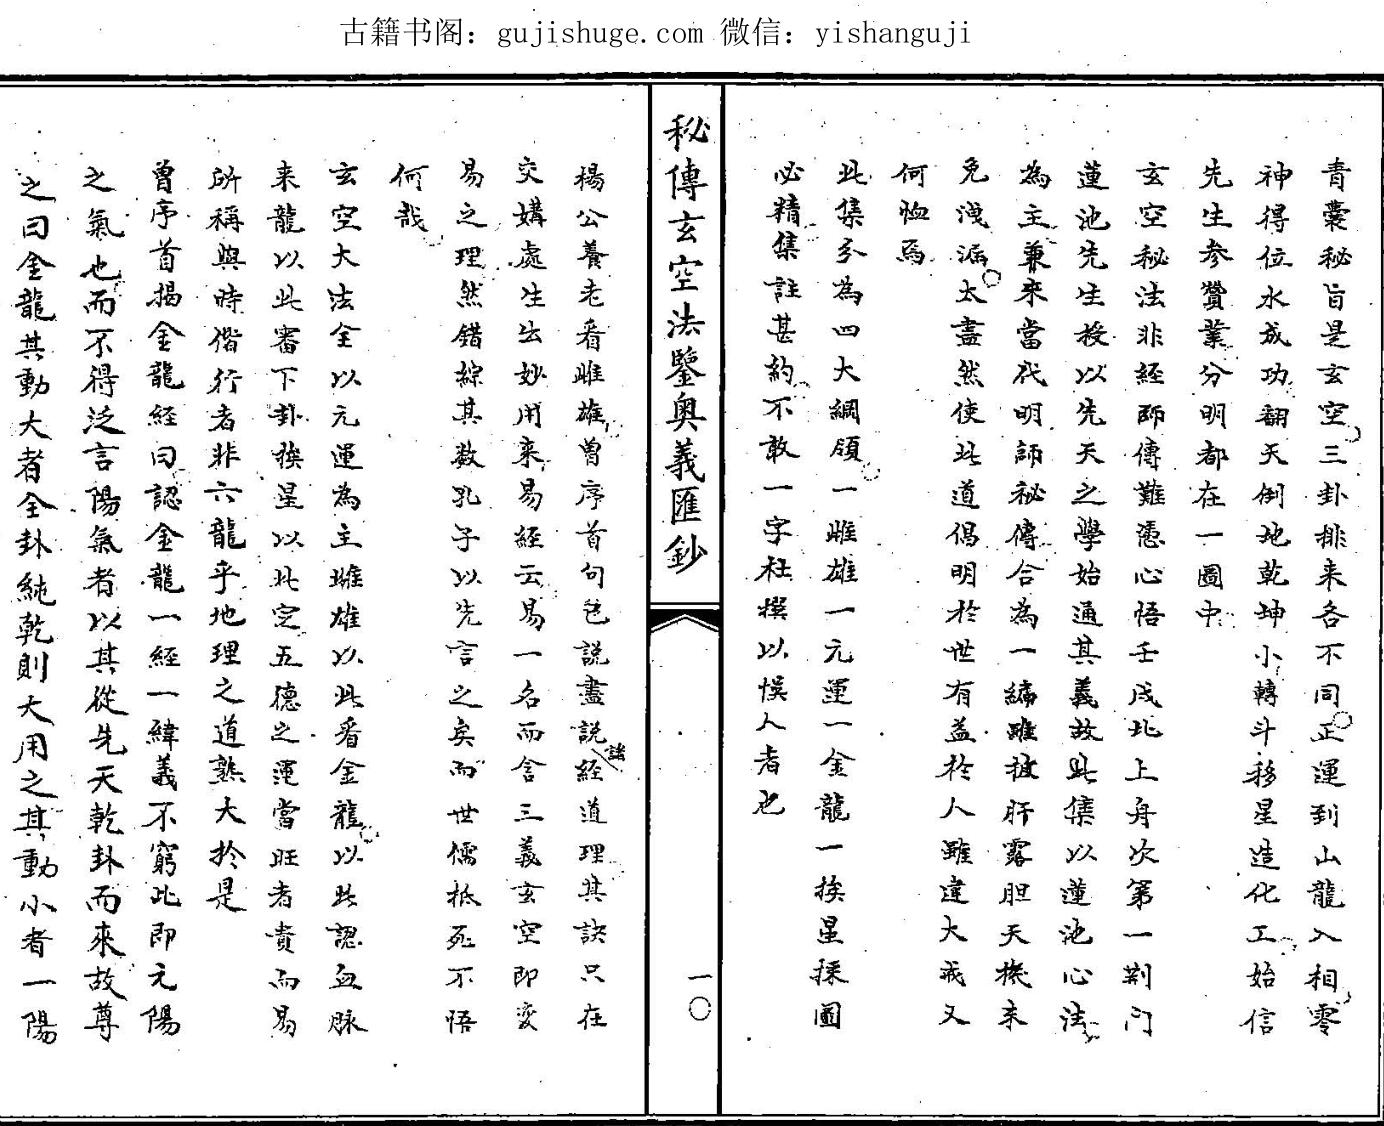 古籍书阁：gujishuge.com 微信：yishanguji
青囊秘旨是玄空三卦排来各不同正運到山龍入相零
神得位水成功翻天倒地乾坤小轉斗移星造化工始信
先生参贊業分明都在一圖中
玄空秘法非經師傳難憑心悟壬戌北上舟次第一荆门
蓮池先生授以先天之學始通其義故此集以蓮池心法
為主兼來當代明師秘傳合為一編雖披肝露胆天機未
免洩漏太盡然使此道倡明於世有益於人雖違大戒又
何恤焉
此集分為四大綱領一雌雄一元運一金龍一挨星採圖
必精集註甚約不敢一字杜撰以悮人者也
秘傳玄空法鑒奧義匯鈔
一〇
楊公養老看雌雄曾序首句已說盡說經諸道理其訣只在
交媾處生出妙用来易經云易一名而含三義玄空即変
易之理然錯綜其数孔子以先言之矣而世儒柢死不悟
何哉
玄空大法全以元運為主雌雄以此看金龍以此認血脉
来龍以此審下卦挨星以此定五德之運當旺者貴而易
所稱與時偕行者非六龍乎地理之道熟大於是
曾序首揭金龍經曰認金龍一經一緯義不窮此即元陽
之氣也而不得泛言陽氣者以其從先天乾卦而來故尊
之曰金龍其動大者全卦純乾則大用之其動小者一陽